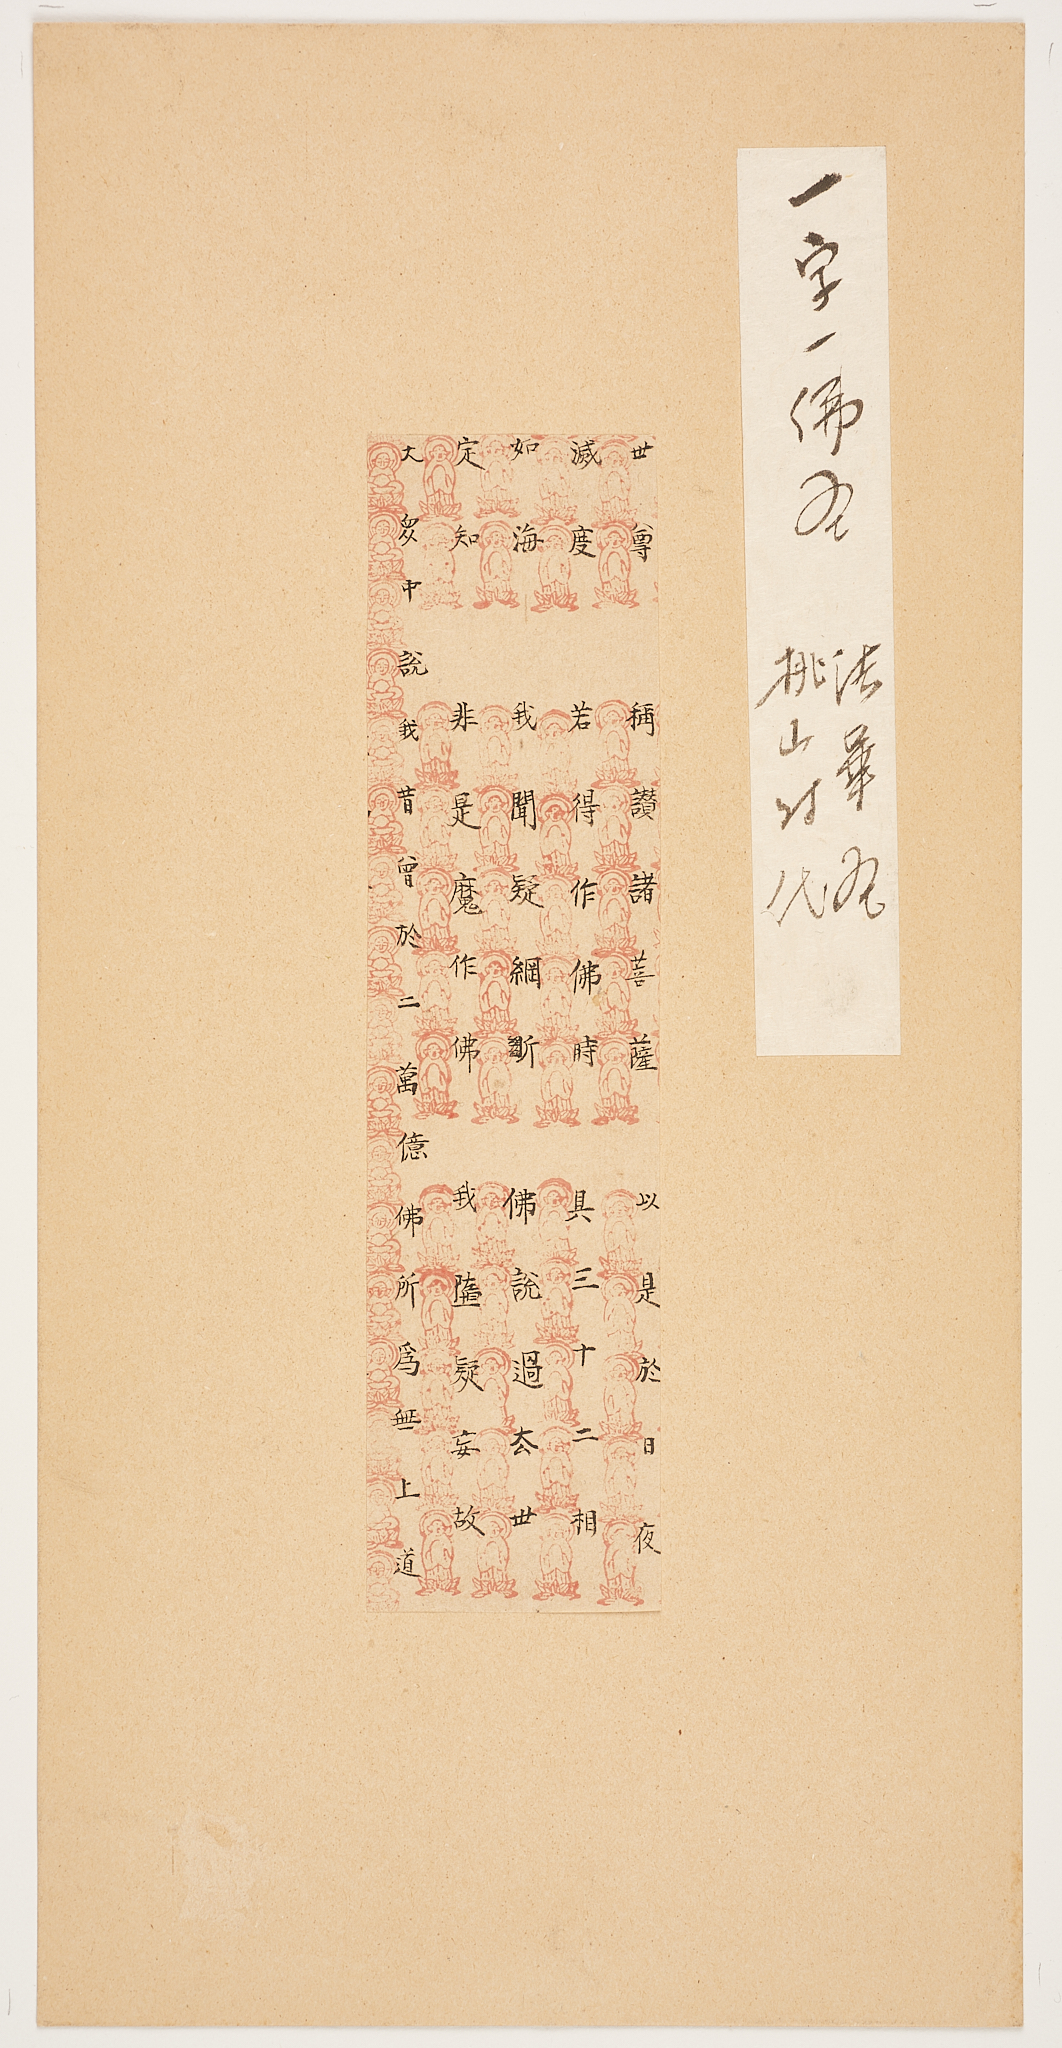 一字一佛経
法華経
桃山时代
世尊 稱讃諸菩薩 以是於日夜
滅度 若得作佛時 具三十二相
如海 我聞疑網斷 佛說過去世
定知 非是魔作佛 我墮疑妄故
大衆中說我昔曾於二萬億佛所爲無上道